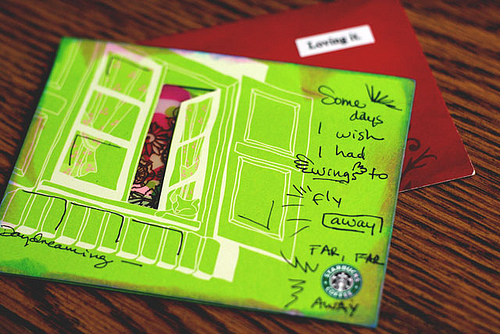 Loving it.
Some
days
I wish
I had
wings to
fly
away
FAR, FAR
AWAY
Daydreaming
STARBUCKS
COFFEE